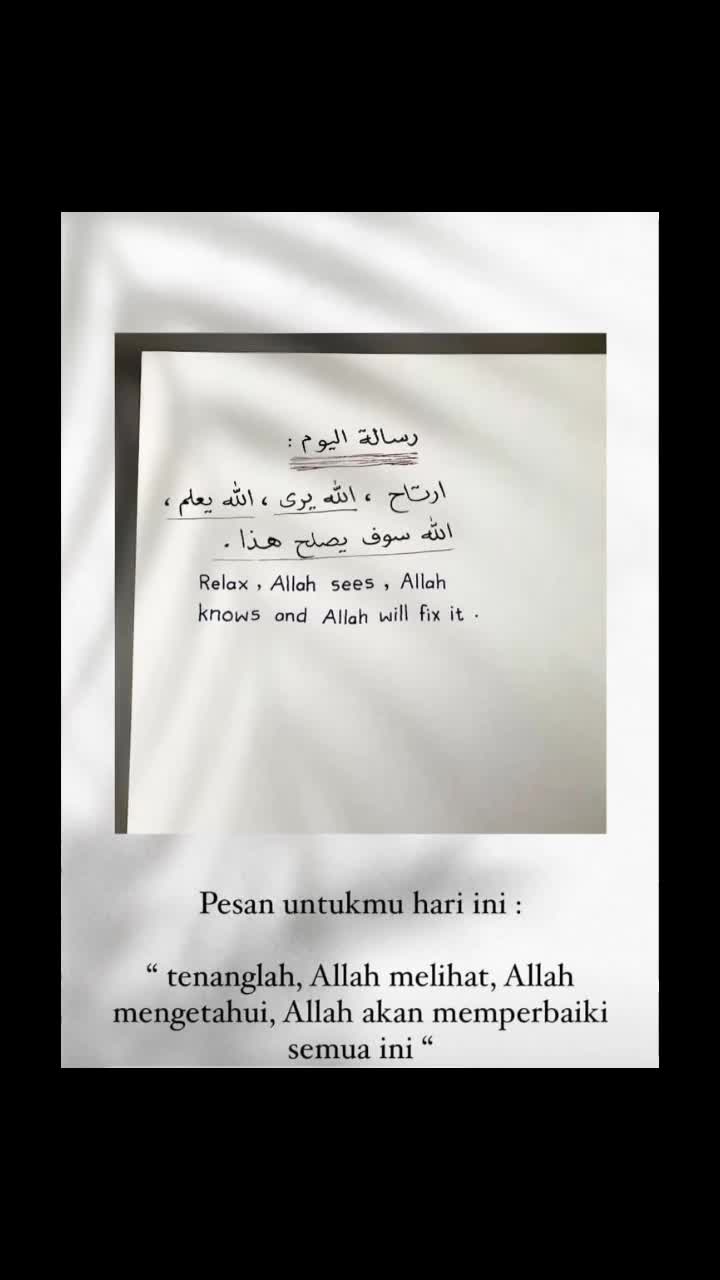 رسالة اليوم :
ارتاح ، الله يرى ، الله يعلم ،
الله سوف يصلح هذا .
Relax , Allah sees , Allah
knows and Allah will fix it .
Pesan untukmu hari ini :
“ tenanglah, Allah melihat, Allah
mengetahui, Allah akan memperbaiki
semua ini “